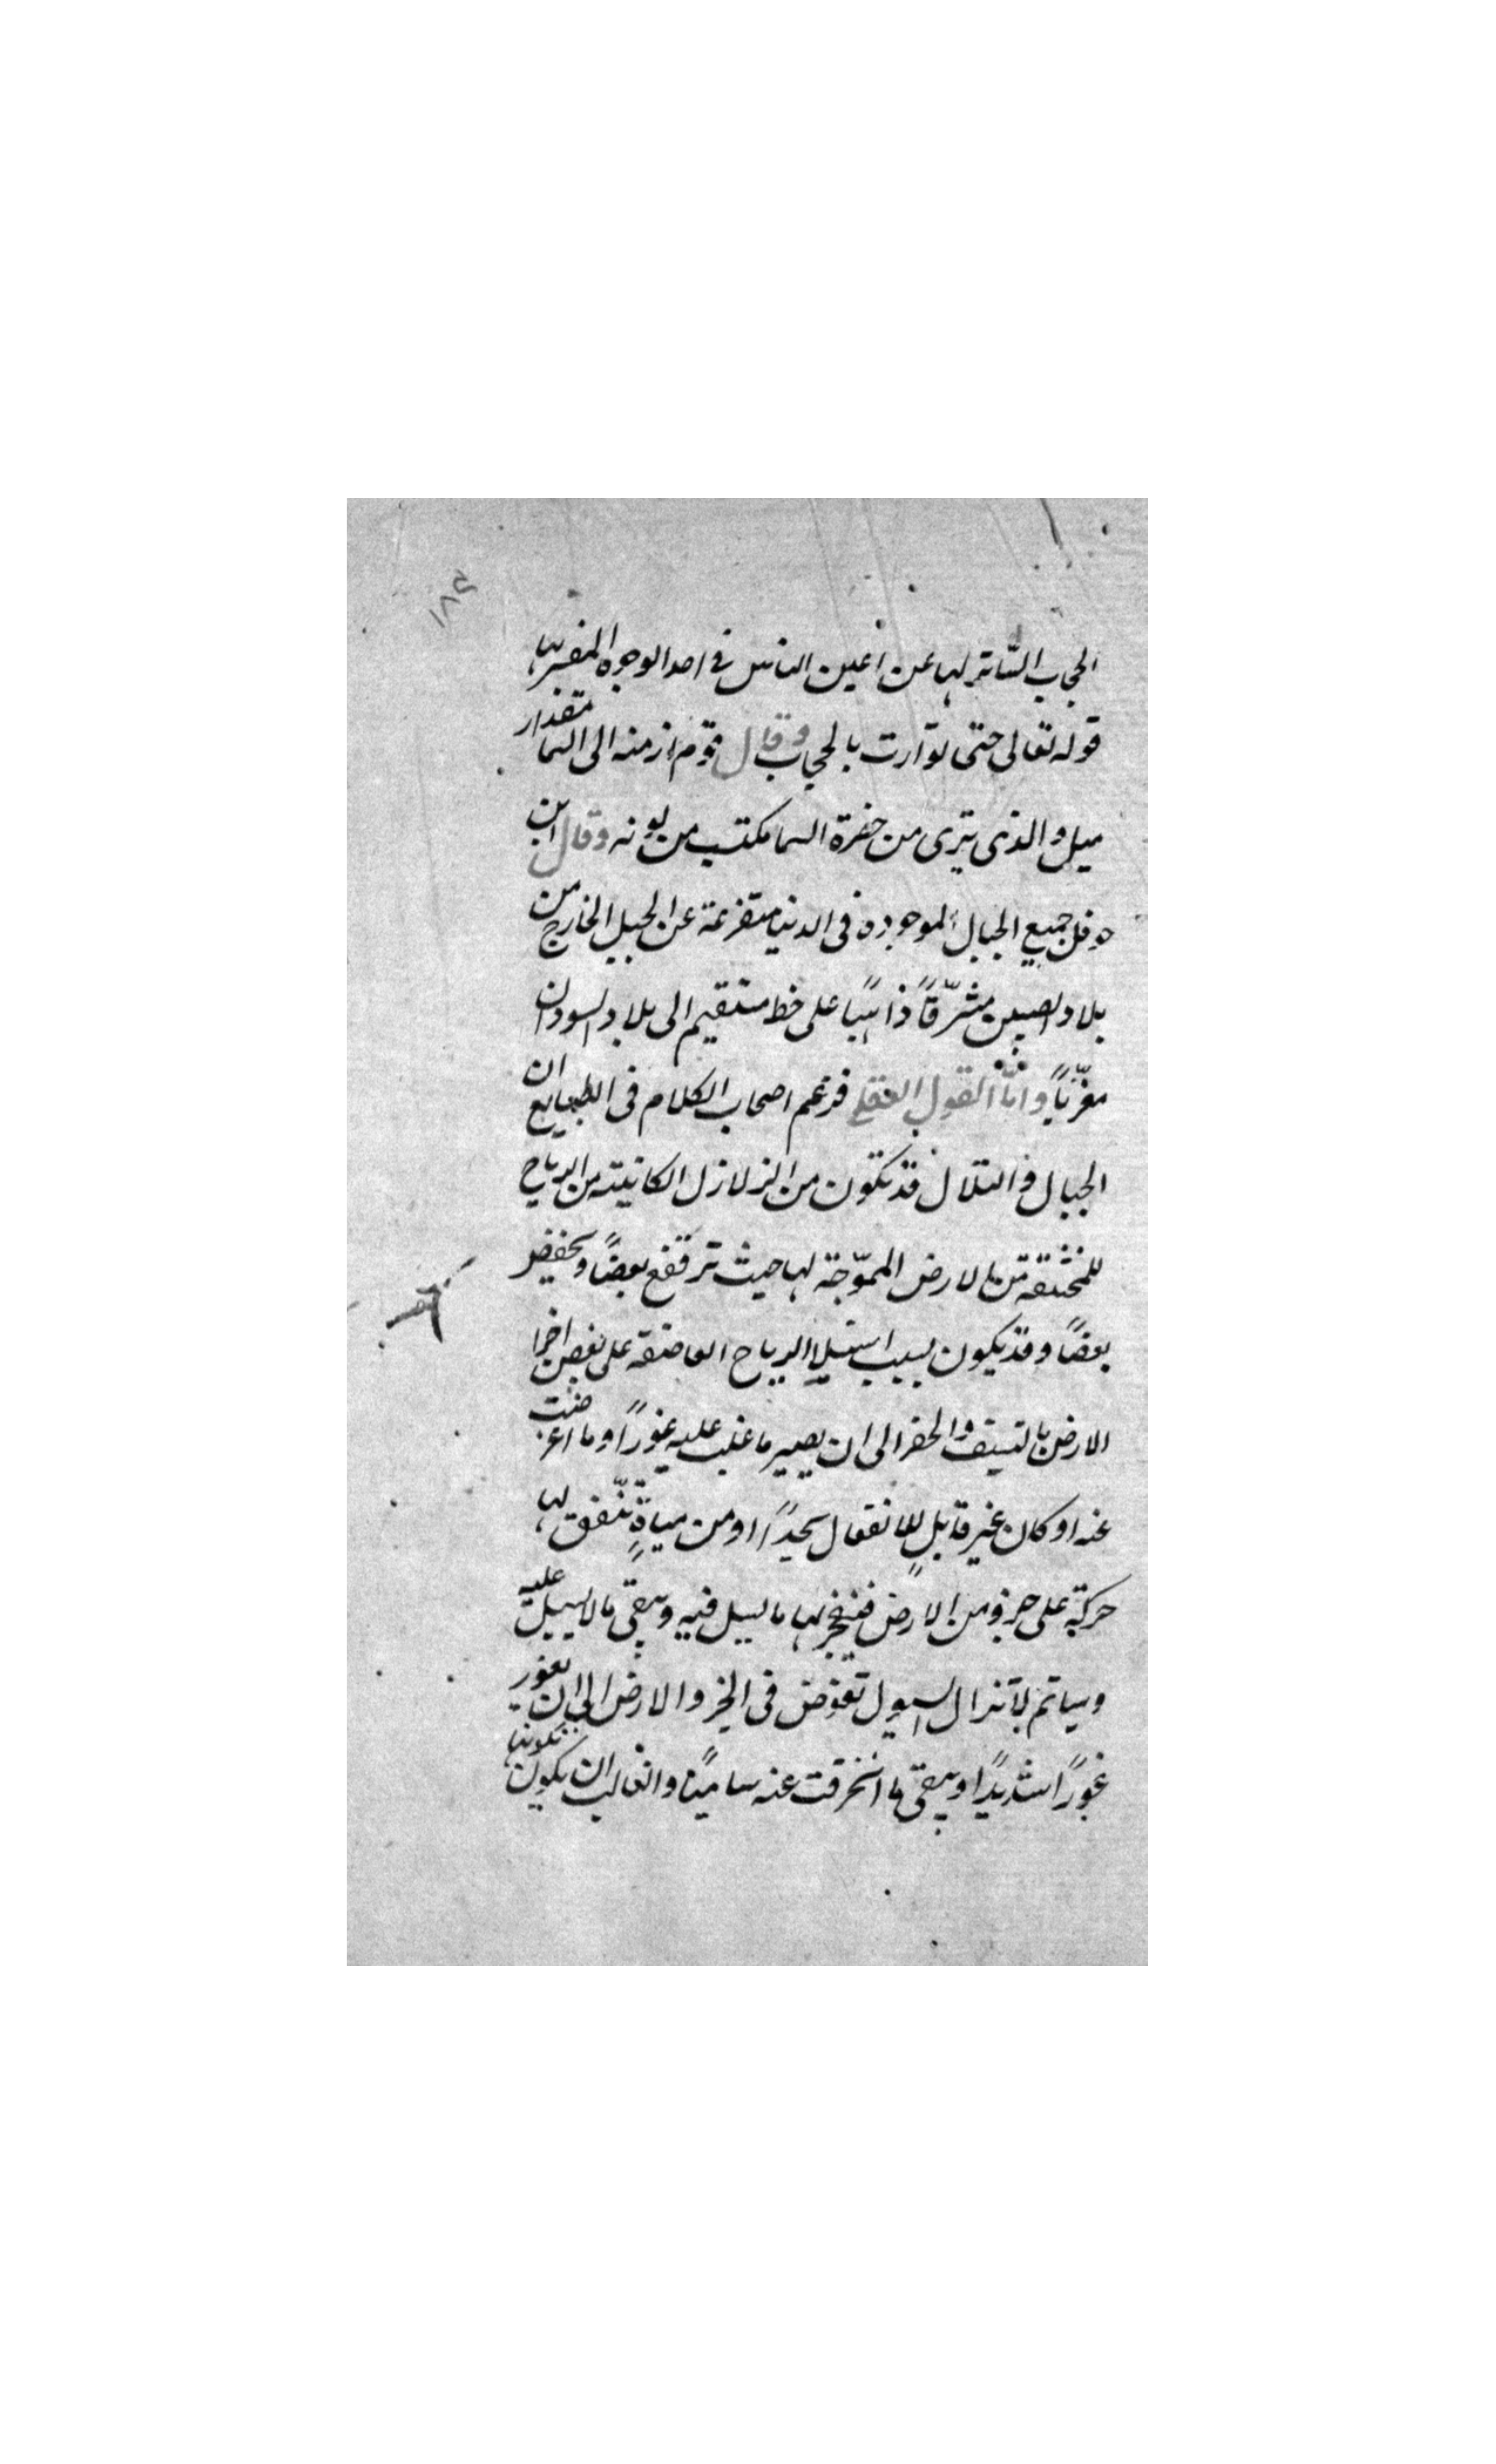 ١٨٤
الحجاب السّاتر لها عن اعين الناس في احد الوجوه المفسر بها
قوله تعالى حتى توارت بالحجاب وقال قوم ان منه الى السما مقدار
ميل والذى يرى من خضرة السما مكتسب من لونه وقال ابن
حوقل جميع الجبال الموجوده فى الدنيا متفرعة عن الجبل الخارج من
بلاد الصين مشرّقًا ذاهبًا على خط مستقيم الى بلاد السودان
مغرّبًا وامّا القول العقلى فزعم اصحاب الكلام فى الطبايع ان
الجبال والتلال قد تكون من الزلازل الكاينة من الرياح
المختنقة من الارض المموّجة لها حيث ترتفع بعضًا وتخفض
بعضًا وقد يكون بسبب استيلا الرياح العاصفة على بعض اجزا
الارض بالنسف والحفر الى ان يصير ما غلب عليه غورًا وما اعرضت
عنه او كان غير قابلٍ للانفعال او من مياهٍ تتفق لها
حركة على جزو من الارض فينفجر لها ما يسيل فيه ويبقى ما لا يسيل عليه
السيول تغوص فى والارض الى ان يغور
غورًا شديدًا ويبقى ما انحرفت عنه ساميًا والغالب ان يكون تكونها